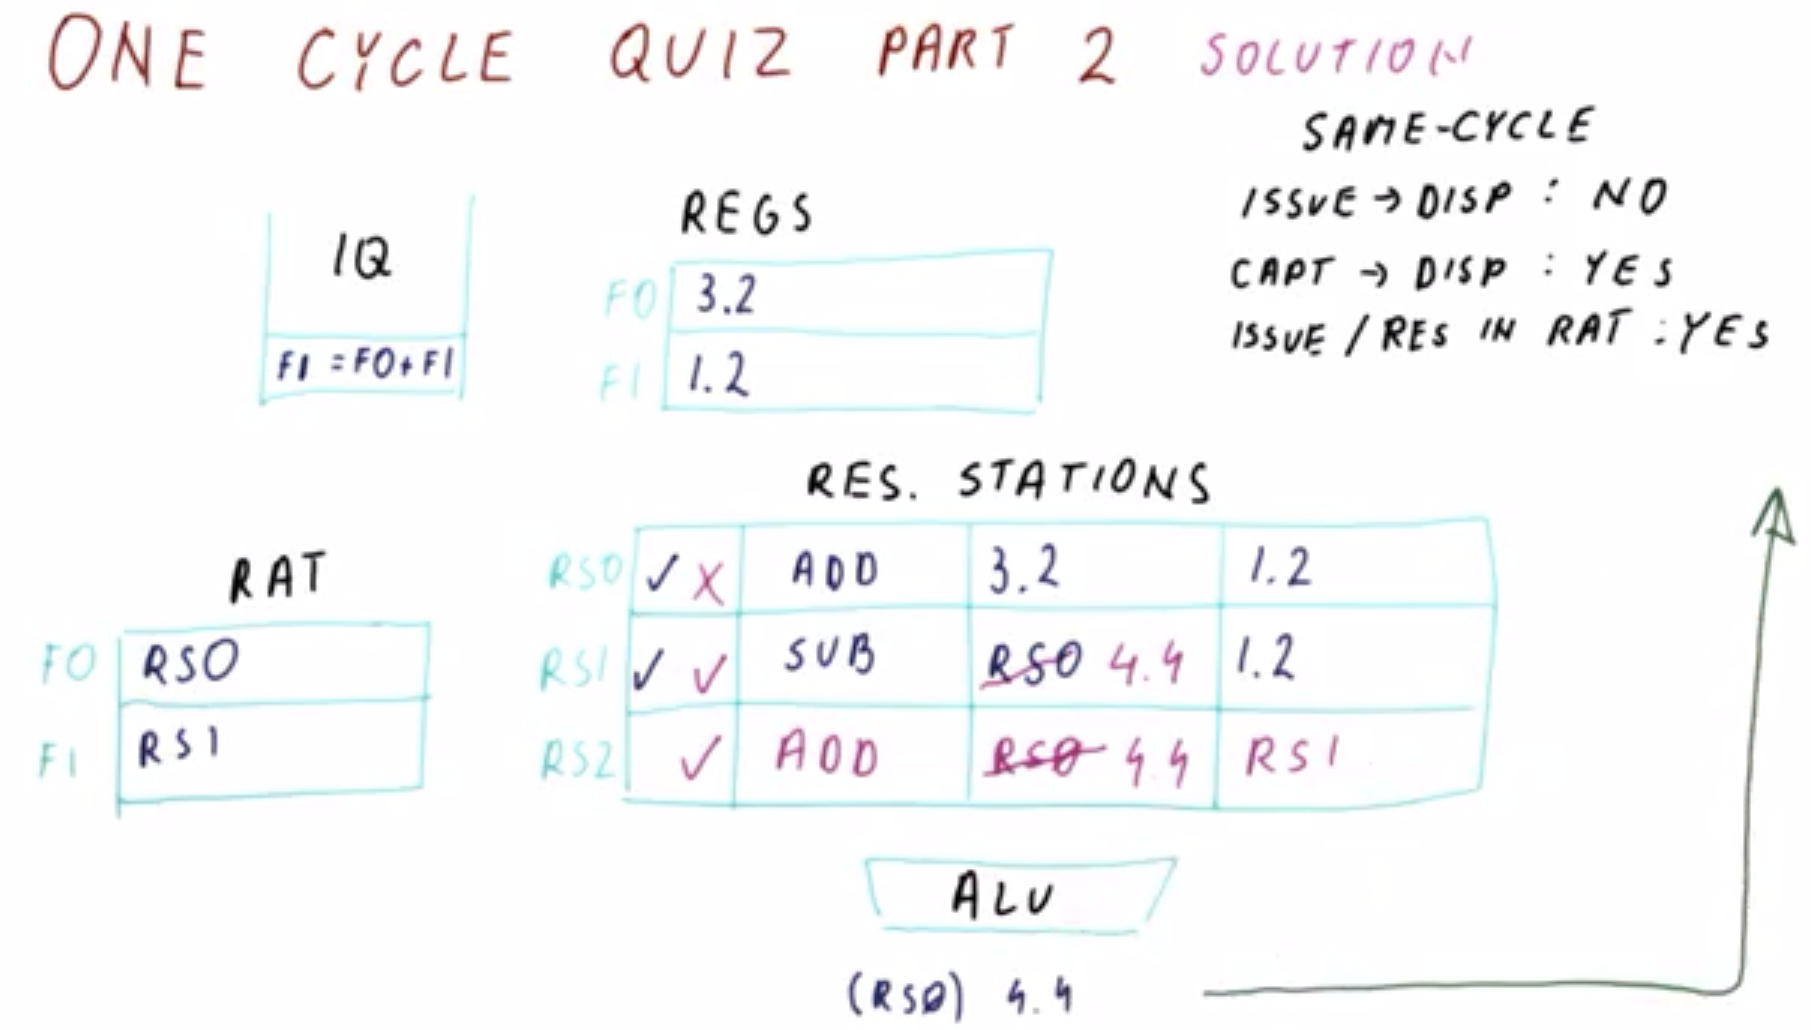 ONE CYCLE QUIZ PART 2 SOLUTION
SAME-CYCLE
ISSUE → DISP : NO
CAPT → DISP : YES
ISSUE / RES IN RAT : YES
IQ
F1 = F0+F1
REGS
F0 3.2
F1 1.2
RES. STATIONS
RS0 ✓ X ADD 3.2 1.2
RS1 ✓ ✓ SUB RS0 4.4 1.2
RS2 ✓ ADD RS0 4.4 RS1
RAT
F0 RS0
F1 RS1
ALU
(RS0) 4.4